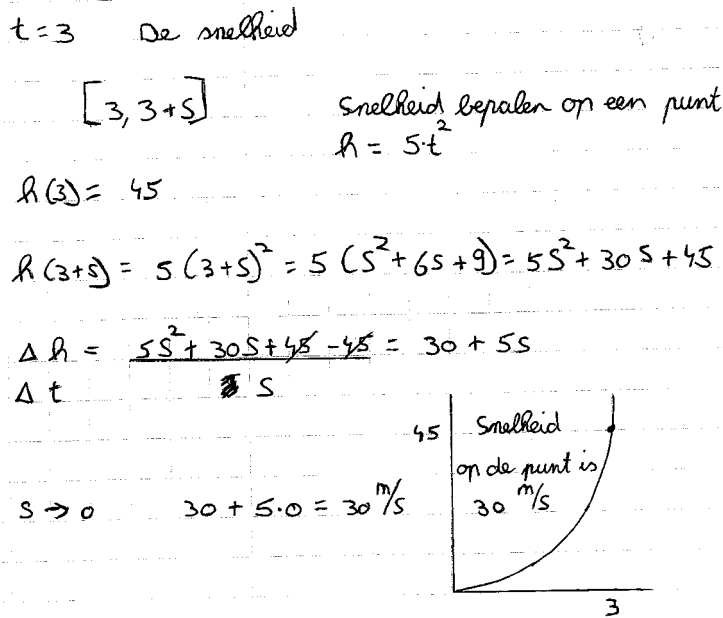 t = 3 De snelheid
[3, 3+S] Snelheid bepalen op een punt
h = 5·t²
h(3) = 45
h(3+s) = 5(3+S)² = 5(S²+6S+9) = 5S²+30S+45
Δh = 5S²+30S+45-45 = 30+5S
Δt S
45 Snelheid
op de punt is
S → 0 30+5·0 = 30 m/s 30 m/s
3